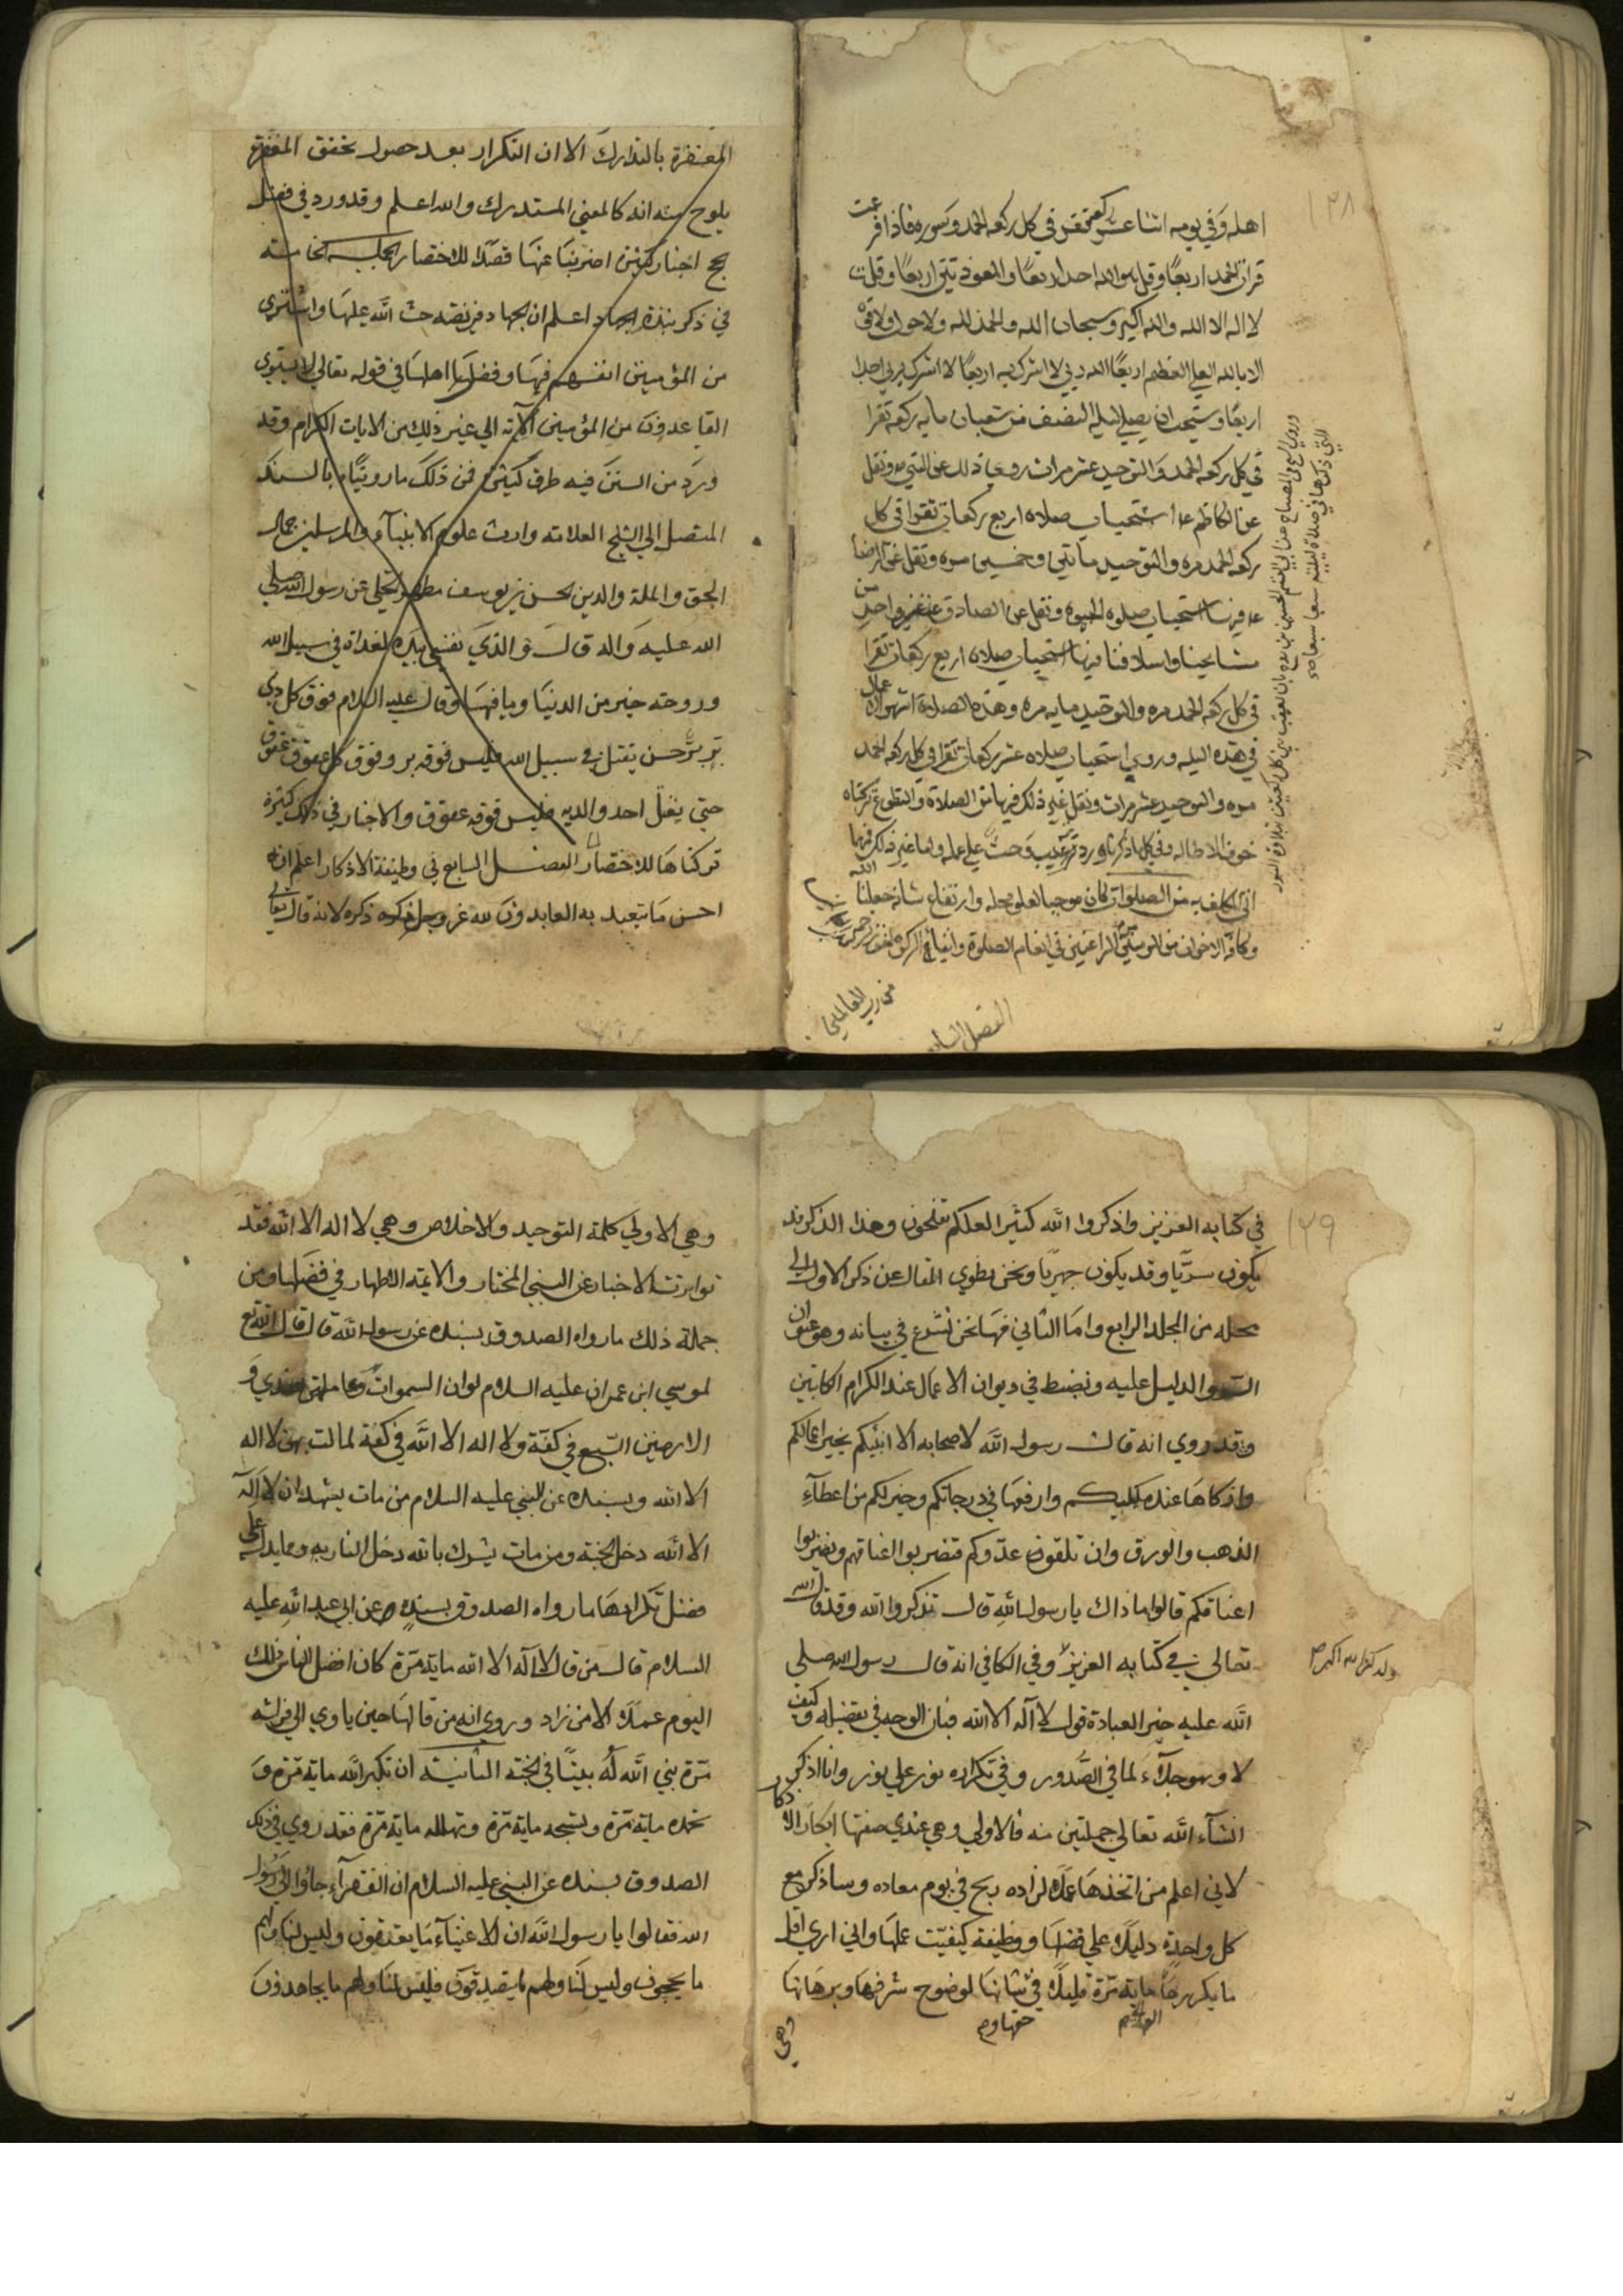 ١٢٨
اهله وفي يومه اثنا عشر ركعة تقرا في كل ركعه الحمد وسوره فاذا فرغت
قرات الحمد اربعًا وقل هو الله احد اربعًا والمعوذتين اربعًا وقلت
لا اله الا الله والله اكبر وسبحان الله والحمد لله ولا حول ولا قوة
الا بالله العلي العظيم اربعًا الله ربي لا اشرك به اربعًا لا اشرك بربي احدا
اربعًا ويستحب ان يصلي ليلة النصف من شعبان مايه ركعه تقرا
في كل ركعه الحمد والتوحيد عشر مرات روي ذلك عن النبي ونقل
عن الكاظم استحباب صلاه اربع ركعات تقرا في كل
ركعه الحمد مره والتوحيد مأتين وخمسين مره ونقل عن الرضا
فيها استحباب صلوه الحبوه ونقل عن الصادق غير واحد من
مشايخنا واسلافنا فيها استحباب صلاه اربع ركعات تقرا
في كل ركعه الحمد مره والتوحيد مايه مره وهذه الصلاة اشهر اعمال
في هذه الليله وروي استحباب صلاه عشر ركعات تقرا في كل ركعه الحمد
مره والتوحيد عشر مرات ونقل غير ذلك فيها من الصلاة والتطوع تركناه
خوف الاطاله وفي كل ما ذكرناه ورد ترغيب وحث علي عمله ولما غير ذلك فيها
اتي المكلف به من الصلوات كان موجبا لعلو محله وارتفاع شانه جعلنا الله
وكافة الاخوان من المومنين الراغبين في اتمام الصلوة وايتاء الزكوة
من رب العالمين
الفصل السابع
المغفرة بالتدارك الا ان التكرار بعد حصول تحقق المغفرة
يلوح منه انه كالمعني المستدرك والله اعلم وقد ورد في فضل
الحج اخبار كثيرة اضربنا عنها قصدًا للاختصار الجلبة الخامسة
في ذكر نبذة الجهاد اعلم ان الجهاد فريضه حث الله عليها واشتري
من المؤمنين انفسهم فيها وفضل اهلها في قوله تعالي لا يستوي
القاعدون من المؤمنين الآية الي غير ذلك من الايات الكرام وقد
ورد من السنن فيه طرق كثيرة فمن ذلك ما رويناه بالسند
المتصل الي الشيخ العلامة وارث علوم الانبيآء والمرسلين جمال
الحق والملة والدين الحسن بن يوسف مطهر الحلي عن رسول الله صلي
الله عليه واله قال والذي نفسي بيده لغداة في سبيل الله
وروحة خير من الدنيا وما فيها وقال عليه السلام فوق كل ذي
بر بر حتي يقتل في سبيل الله فليس فوقه بر وفوق كل عقوق عقوق
حتي يقتل احد والديه فليس فوقه عقوق والاخبار في ذلك كثيرة
تركناها للاختصار الفصل السابع في وظيفة الاذكار اعلم ان
احسن ما تعبد به العابدون لله عز وجل ذكره لانه قال تعالي
١٢٩
في كتابه العزيز واذكروا الله كثيرا لعلكم تفلحون وهذا الذكر قد
يكون سرّيا وقد يكون جهريًا ونحن نطوي المقال عن ذكر الاول الي
محله من المجلد الرابع واما الثاني فها نحن نشرع في بيانه وهو عنوان
السر والدليل عليه ونضبط في ديوان الاعمال عند الكرام الكاتبين
وقد روي انه قال رسول الله لاصحابه الا انبئكم بخير اعمالكم
وازكاها عند مليككم وارفعها في درجاتكم وخير لكم من اعطآء
الذهب والورق وان تلقون عدوكم فتضربوا اعناقهم ويضربوا
اعناقكم قالوا ما ذاك يا رسول الله قال تذكروا الله وقد قال الله
تعالي في كتابه العزيز ولذكر الله اكبر وفي الكافي انه قال رسول الله صلي
الله عليه خير العبادة قول لا آله الا الله فبان الوجه في تفضيله وكيف
لا وهو جلآء لما في الصدور وفي تكراره نور علي نور وانا اذكر
انشآء الله تعالي جملتين منه فالاولي وهي عندي صفتها ابكار الاذكار
لاني اعلم من اتخذها عملًا لزاده ربح في يوم معاده وساذكر مع
كل واحدة دليلًا علي فضلها ووظيفة كيفيت عملها واني اري اقل
ما يكررها ماية مرة قليلًا في شانها لوضوح شرفها وبرهانها
وهي
وهي الاولي كلمة التوحيد والاخلاص وهي لا اله الا الله فقد
تواترت الاخبار عن النبي المختار والايمة الاطهار في فضلها ومن
جملة ذلك ما رواه الصدوق بسنده عن رسول الله قال قال الله تع
لموسي ابن عمران عليه السلام لو ان السموات وعامليهن عندي و
الارضين السبع في كفة ولا اله الا الله في كفة لمالت بهن لا اله
الا الله وبسنده عن النبي عليه السلام من مات يشهد ان لا آله
الا الله دخل الجنة ومن مات يشرك بالله دخل النار به ومما يدل علي
فضل تكرارها ما رواه الصدوق بسنده عن ابي عبد الله عليه
السلام قال من قال لا آله الا الله ماية مرة كان افضل الناس ذلك
اليوم عملًا الا من زاد وروي انه من قالها حين ياوي الي فراشه
مرة بني الله له بيتًا في الجنة الثانية ان تكبر الله ماية مرة و
تحمده ماية مرة وتسبحه ماية مرة وتهلله ماية مرة فقد روي في ذلك
الصدوق بسنده عن النبي عليه السلام ان الفقرآء جاؤا الي رسول
الله فقالوا يا رسول الله ان الاغنيآء ما يعتقون وليس لنا ولهم
ما يحجون وليس لنا ولهم ما يتصدقون فليس لنا ولهم ما يجاهدون